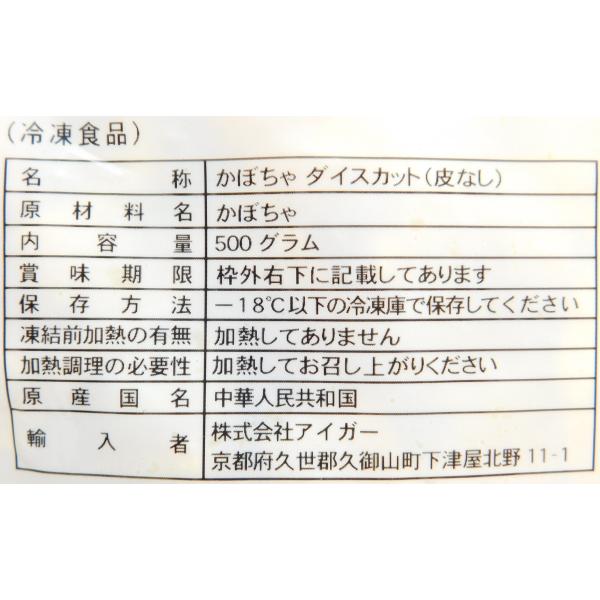 (冷凍食品)
名称 かぼちゃ ダイスカット(皮なし)
原材料名 かぼちゃ
内容量 500グラム
賞味期限 枠外右下に記載してあります
保存方法 -18℃以下の冷凍庫で保存してください
凍結前加熱の有無 加熱してありません
加熱調理の必要性 加熱してお召し上がりください
原産国名 中華人民共和国
輸入者 株式会社アイガー
京都府久世郡久御山町下津屋北野11-1